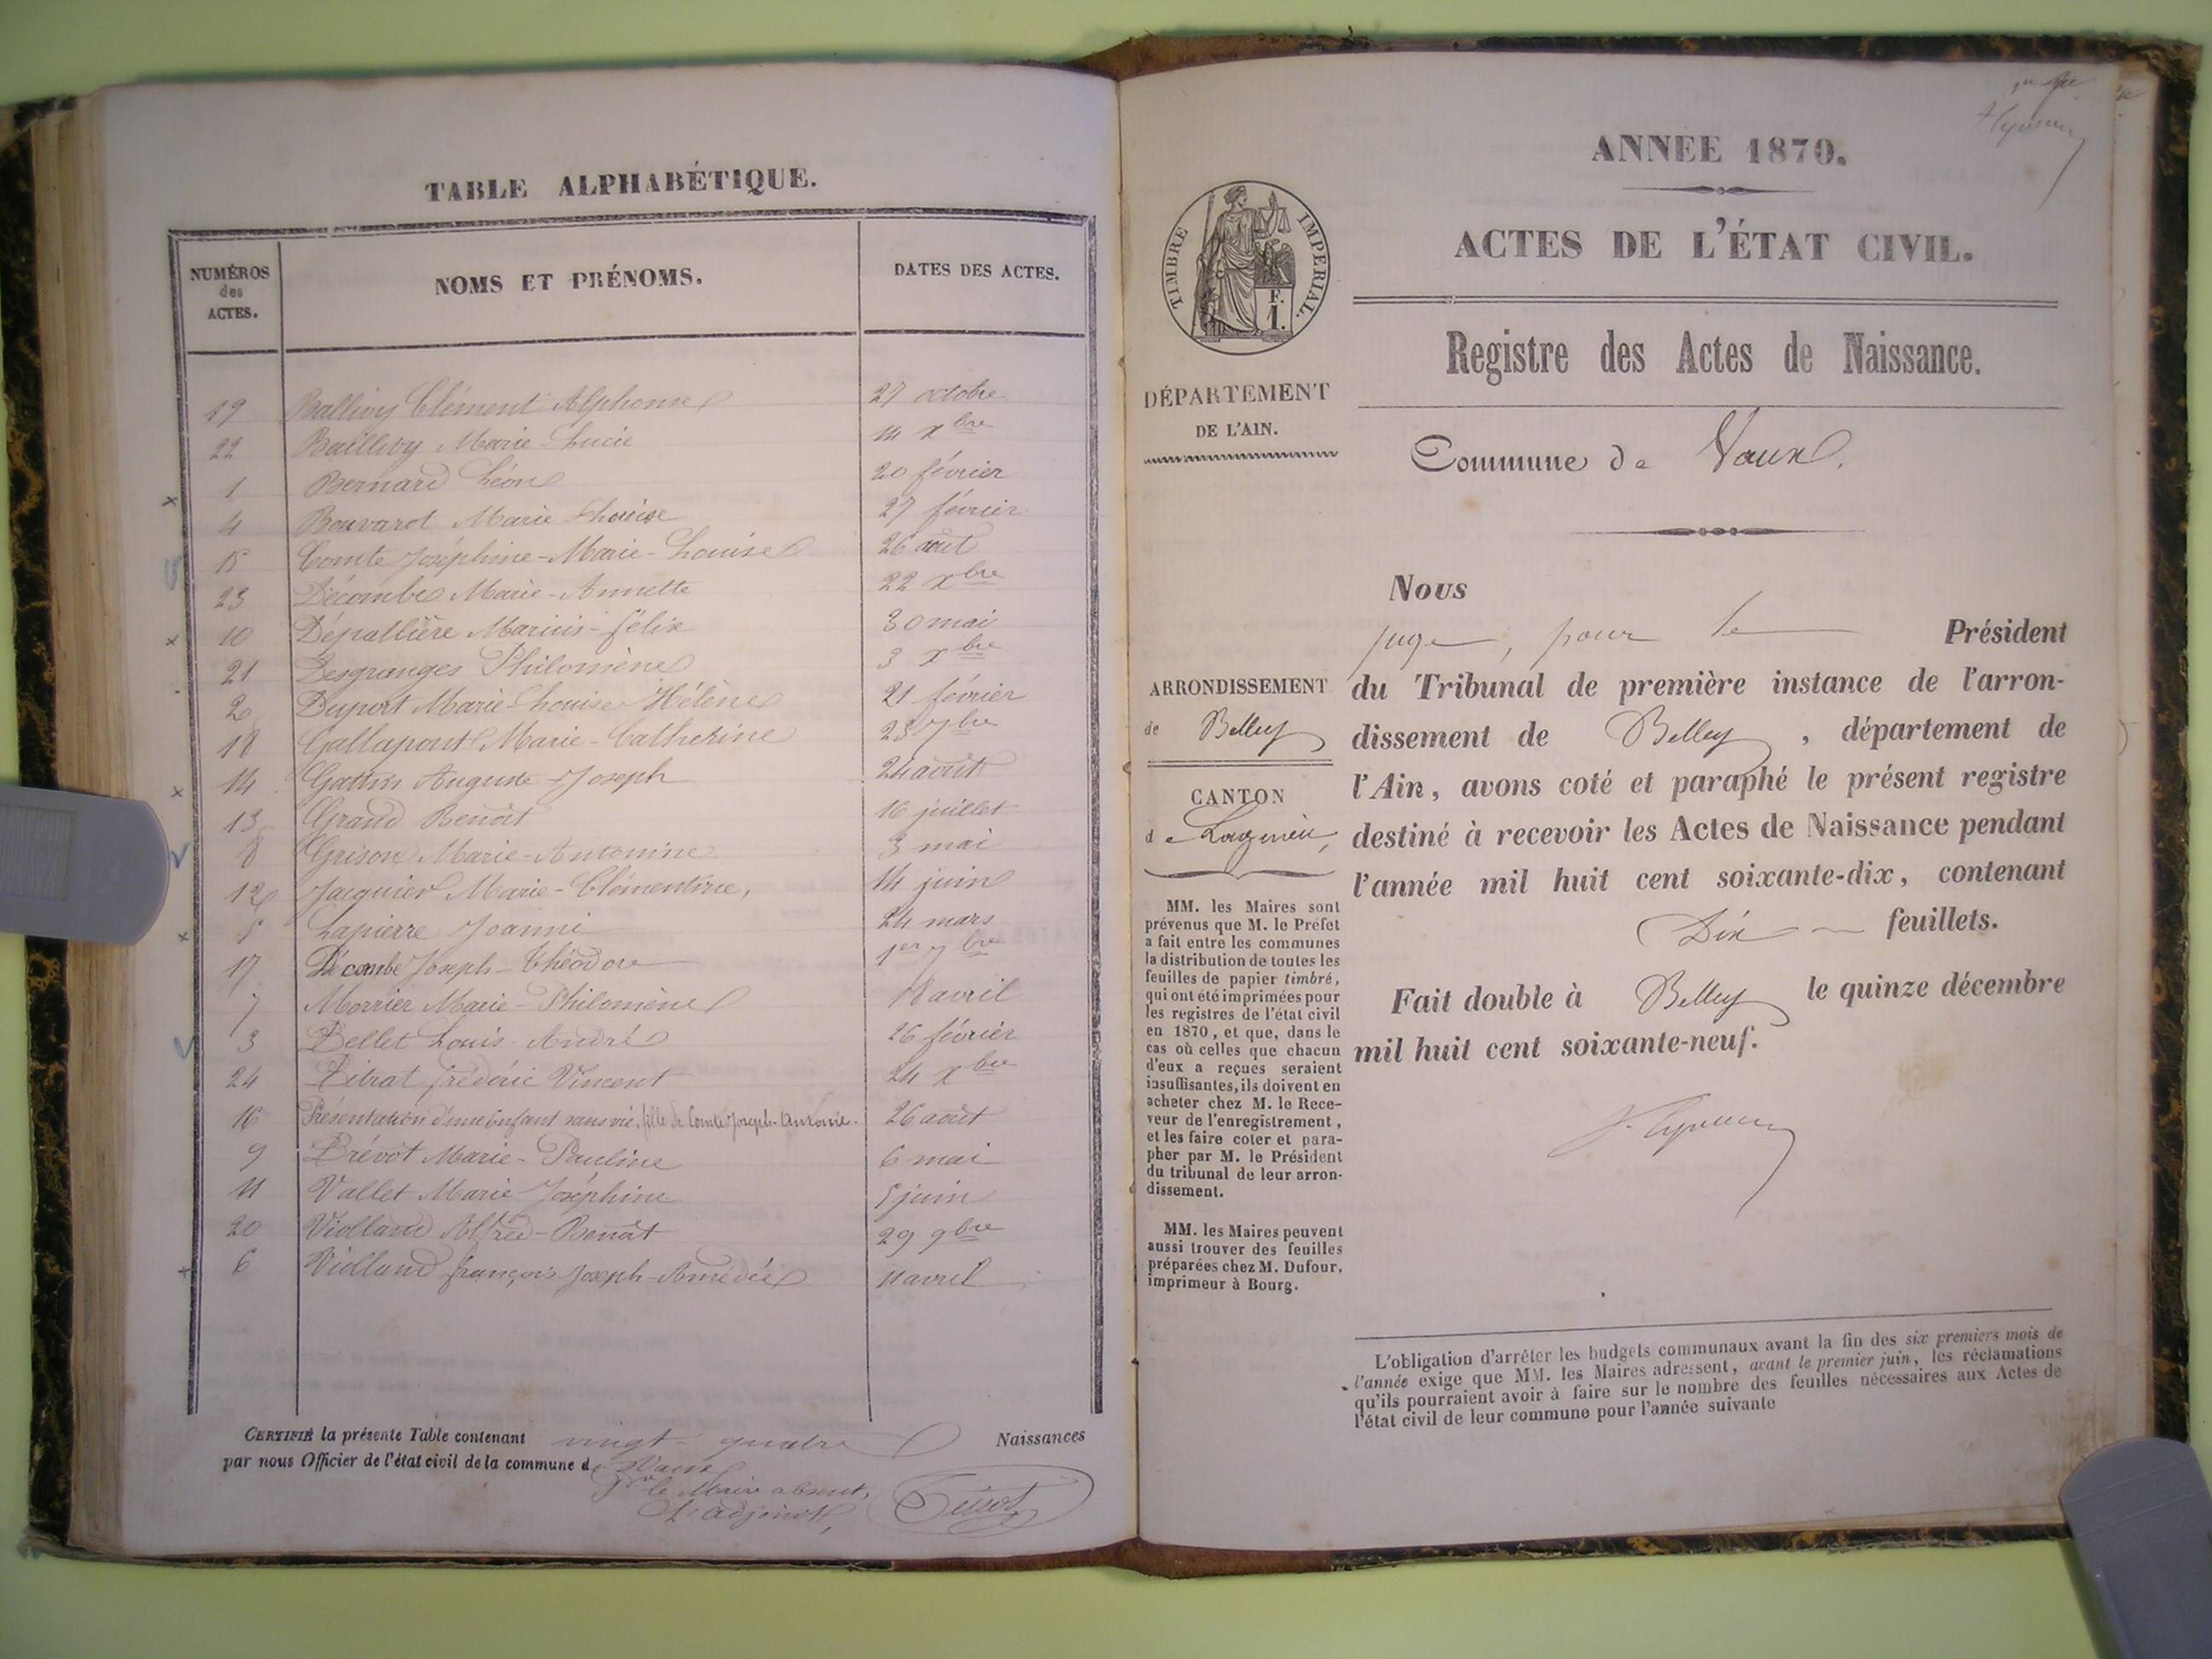 TABLE ALPHABÉTIQUE.
NUMÉROS des ACTES.
NOMS ET PRÉNOMS.
DATES DES ACTES.
19 Ballivy Clément Alphonse 27 octobre
22 Baillivy Marie-Lucie 14 Xbre
1 Bernard Léon 20 février
4 Bouvarot Marie Louise 27 février
15 Comte Joséphine-Marie-Louise 26 août
23 Décombe Marie-Annette 22 Xbre
10 Dépallière Marius-félix 30 mai
21 Desgranges Philomène 3 Xbre
2 Duport Marie-Louise-Hélène 21 février
18 Gallapont Marie-Catherine 23 7bre
14 Gattin Auguste-Joseph 24 août
13 Grand Benoît 16 juillet
8 Grison Marie-Antonine 3 mai
12 Jacquier Marie-Clémentine, 14 juin
5 Lapierre Joanni 24 mars
17 Décombe Joseph-Théodore 1er 7bre
7 Morrier Marie-Philomène 18 avril
3 Pellet Louis-André 26 février
24 Pitrat frédéric Vincent 24 Xbre
16 Présentation d'une enfant sans vie, fille de Comte Joseph-Antoine. 26 août
9 Prévôt Marie-Pauline 6 mai
11 Vallet Marie-Joséphine 5 juin
20 Violland Alfred-Benoît 29 9bre
6 Violland françois Joseph-Amédée 11 avril
CERTIFIÉ la présente Table contenant vingt-quatre Naissances
par nous Officier de l'état civil de la commune de Vaux
Pr le Maire absent,
L'adjoint,
ANNÉE 1870.
ACTES DE L'ÉTAT CIVIL.
TIMBRE IMPÉRIAL.
F.
1.
Registre des Actes de Naissance.
DÉPARTEMENT
DE L'AIN.
Commune de Vaux.
Nous
juge, pour le Président
du Tribunal de première instance de l'arron-
dissement de Belley, département de
l'Ain, avons coté et paraphé le présent registre
destiné à recevoir les Actes de Naissance pendant
l'année mil huit cent soixante-dix, contenant
Dix feuillets.
Fait double à Belley le quinze décembre
mil huit cent soixante-neuf.
ARRONDISSEMENT
de Belley
CANTON
de Lagnieu,
MM. les Maires sont
prévenus que M. le Préfet
a fait entre les communes
la distribution de toutes les
feuilles de papier timbré,
qui ont été imprimées pour
les registres de l'état civil
en 1870, et que, dans le
cas où celles que chacun
d'eux a reçues seraient
insuffisantes, ils doivent en
acheter chez M. le Rece-
veur de l'enregistrement,
et les faire coter et para-
pher par M. le Président
du tribunal de leur arron-
dissement.
MM. les Maires peuvent
aussi trouver des feuilles
préparées chez M. Dufour,
imprimeur à Bourg.
L'obligation d'arrêter les budgets communaux avant la fin des six premiers mois de
l'année exige que MM. les Maires adressent, avant le premier juin, les réclamations
qu'ils pourraient avoir à faire sur le nombre des feuilles nécessaires aux Actes de
l'état civil de leur commune pour l'année suivante